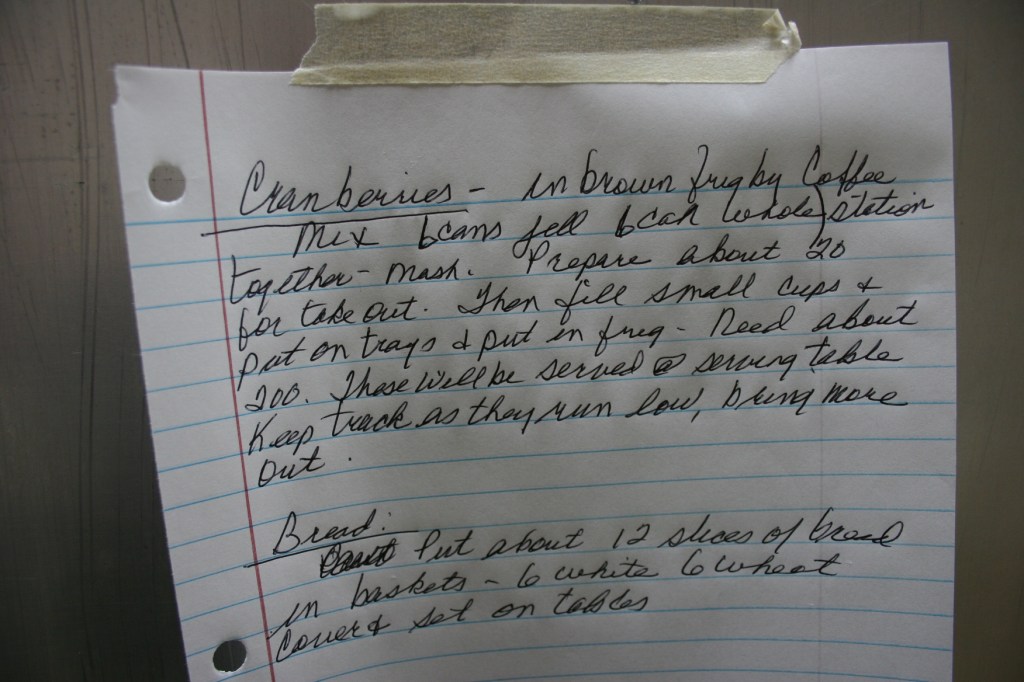 Cranberries - in brown frig by Coffee
Mix 6 cans jell 6 can whole) station
together - mash. Prepare about 20
for take out. Then fill small cups &
put on trays & put in frig - Need about
200. These will be served @ serving table
Keep track as they run low, bring more
out.
Bread:
Put about 12 slices of bread
in baskets - 6 white 6 wheat
Cover & set on tables